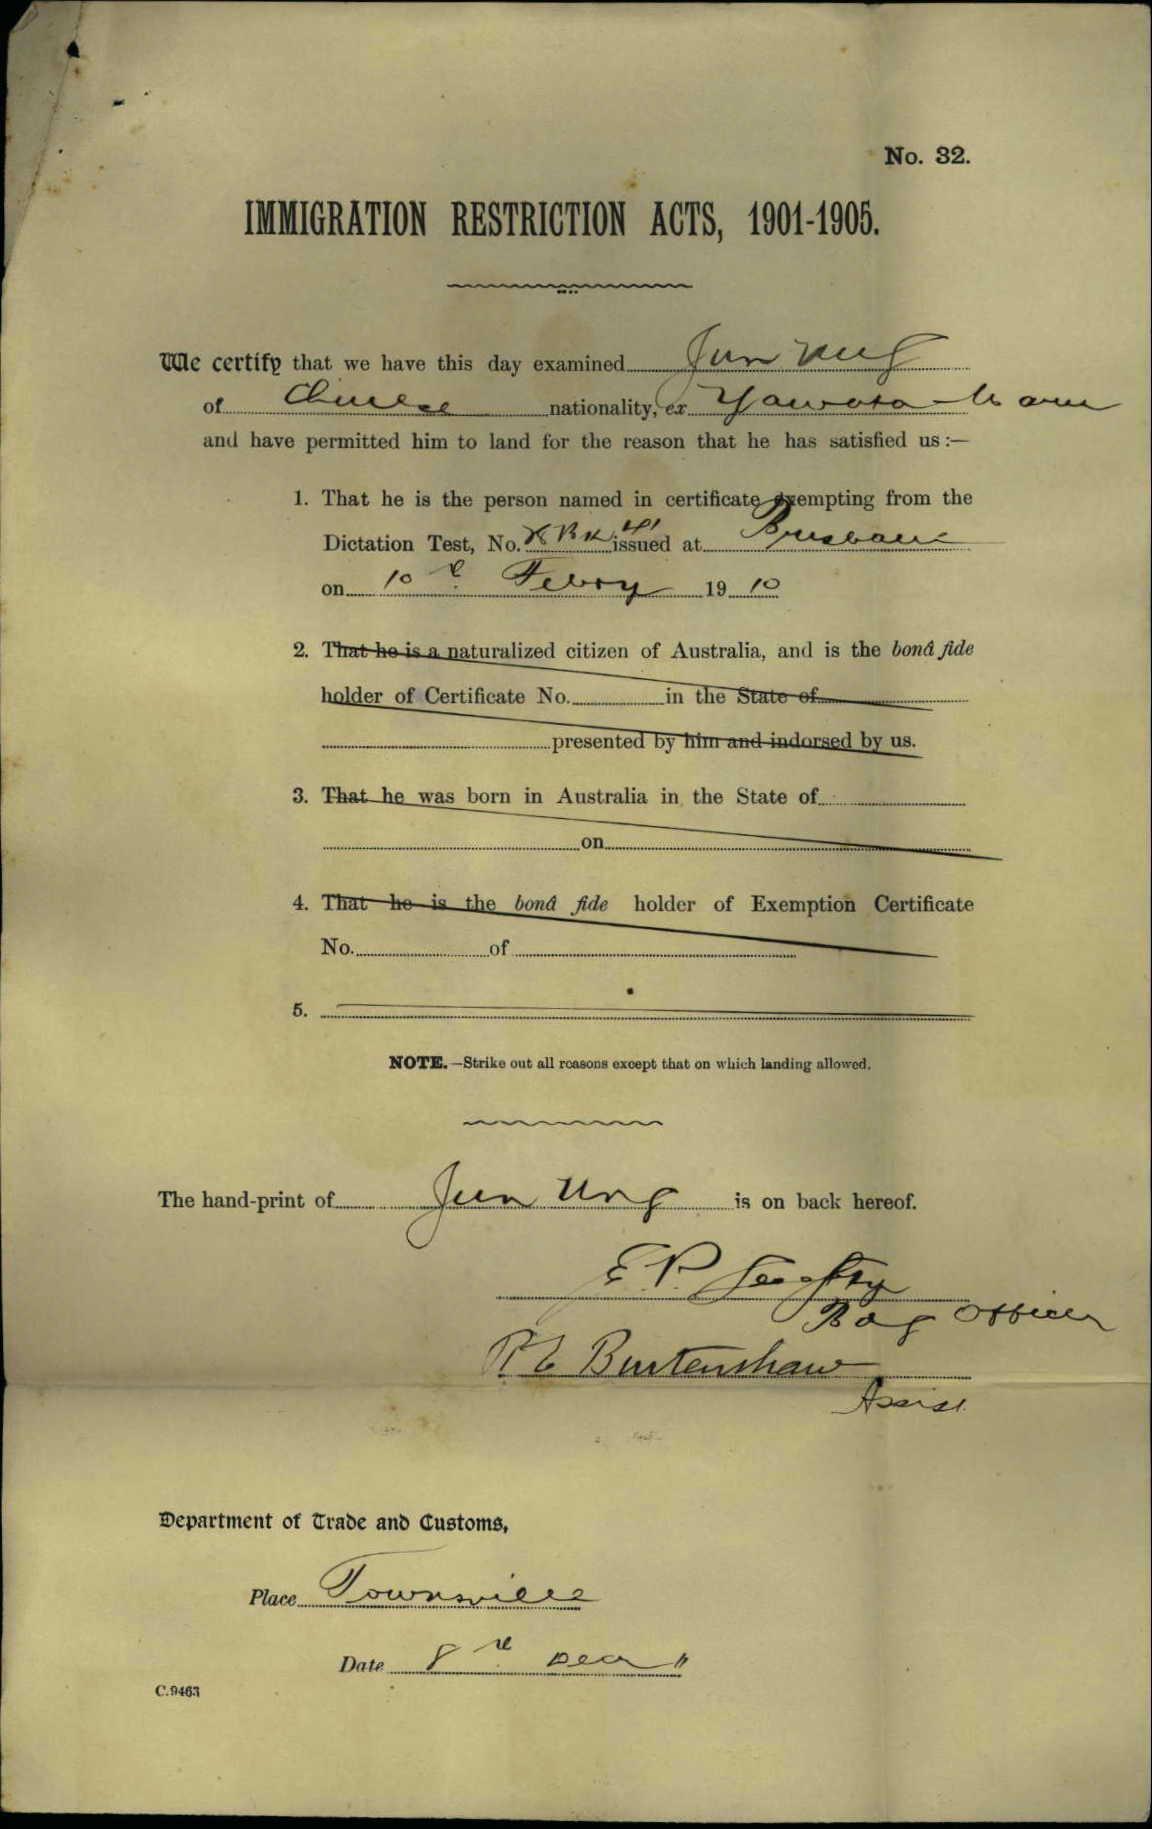 No. 32.
IMMIGRATION RESTRICTION ACTS, 1901-1905.
We certify that we have this day examined Jun Ung
of Chinese nationality, ex Yawata Maru
and have permitted him to land for the reason that he has satisfied us :—
1. That he is the person named in certificate exempting from the
Dictation Test, No. issued at Brisbane
on 10th Febry 1910
2. That he is a naturalized citizen of Australia, and is the bonâ fide
holder of Certificate No. in the State of
presented by him and indorsed by us.
3. That he was born in Australia in the State of
on
4. That he is the bonâ fide holder of Exemption Certificate
No. of
5.
NOTE.—Strike out all reasons except that on which landing allowed.
The hand-print of Jun Ung is on back hereof.
E. P.
Bdg Officer
R E Burtenshaw
Assist.
Department of Trade and Customs,
Place Townsville
Date 8th Decr 11
C.9463